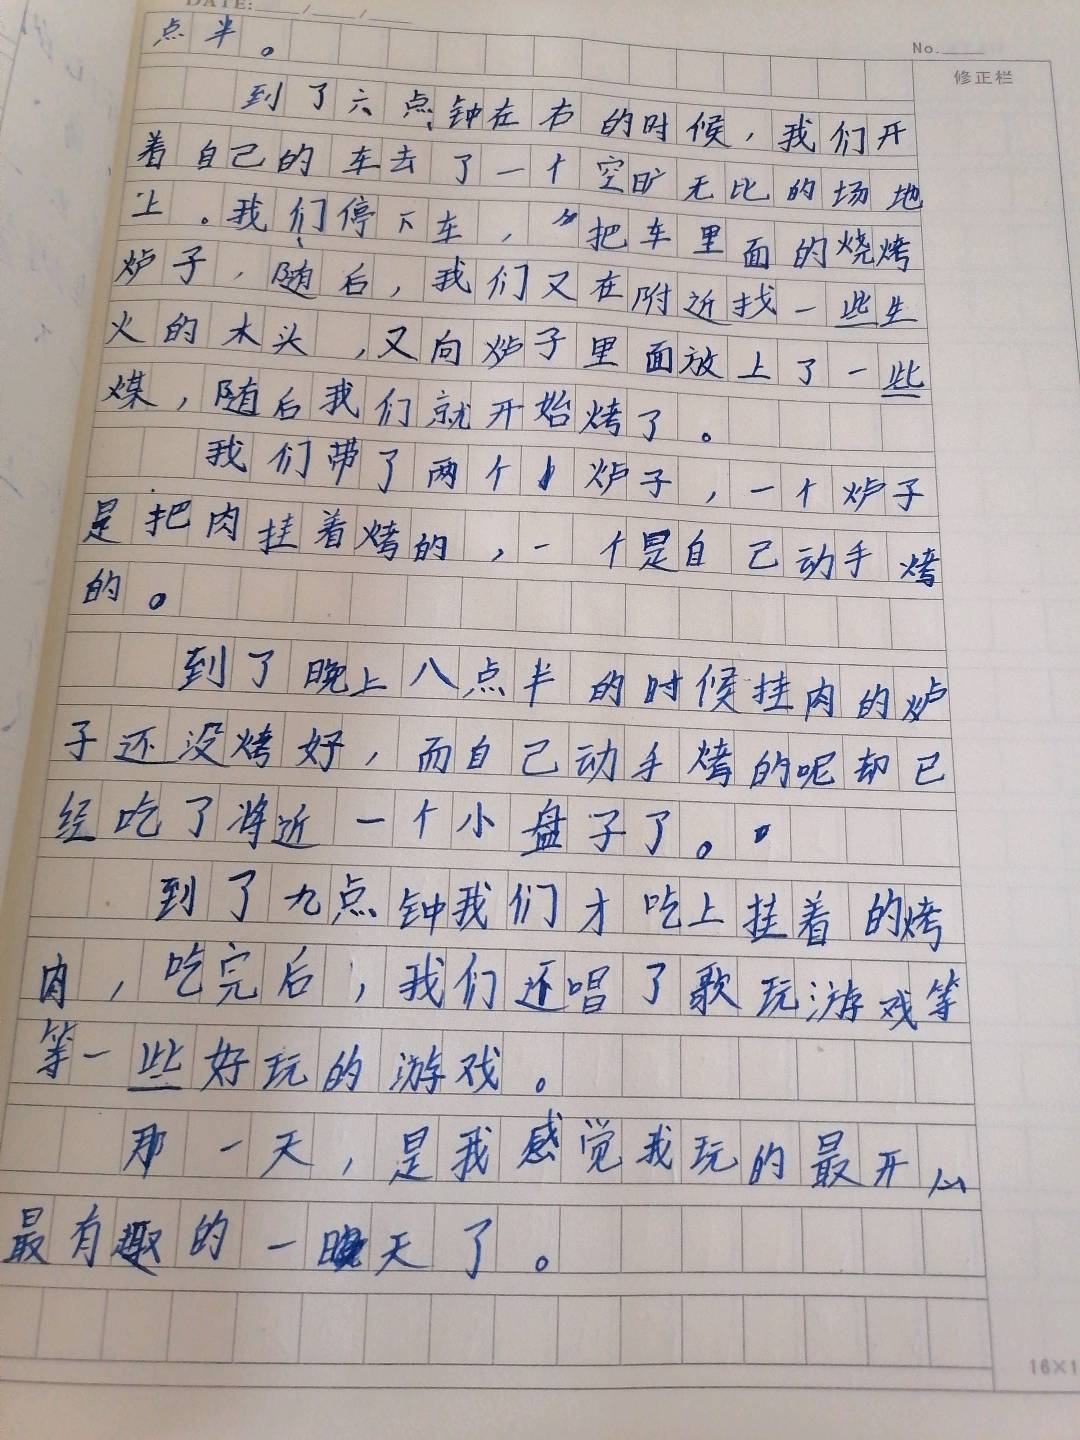 DATE:
No.
修正栏
点半。
到了六点钟在右的时候，我们开
着自己的车去了一个空旷无比的场地
上。我们停下车，把车里面的烧烤
炉子，随后，我们又在附近找一些生
火的木头，又向炉子里面放上了一些
煤，随后我们就开始烤了。
我们带了两个炉子，一个炉子
是把肉挂着烤的，一个是自己动手烤
的。
到了晚上八点半的时候挂肉的炉
子还没烤好，而自己动手烤的呢却已
经吃了将近一个小盘子了。
到了九点钟我们才吃上挂着的烤
肉，吃完后，我们还唱了歌玩游戏等
等一些好玩的游戏。
那一天，是我感觉我玩的最开心
最有趣的一天了。
16×1